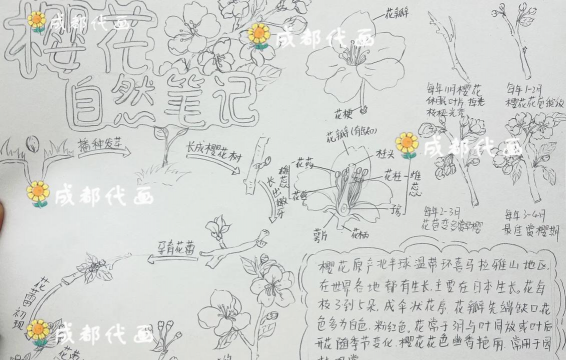 樱花
自然笔记
成都代画
成都代画
成都代画
成都代画
成都代画
成都代画
播种发芽
长成樱花树
长出嫩芽
孕育花苞
花苞初现
花瓣
花梗
花药
花丝
柱头
花柱
雌蕊
子房
萼片
花柄
每年1-2月
每年2-3月
每年3-4月
最佳赏樱期
樱花原产北半球温带环喜马拉雅山地区,
在世界各地都有生长,主要在日本生长,花每
枝3到5朵,成伞状花序,花瓣先端缺口,花
色多为白色、粉红色,花常于3月与叶同放或叶后
开花,随季节变化,樱花花色幽香艳丽,常用于园